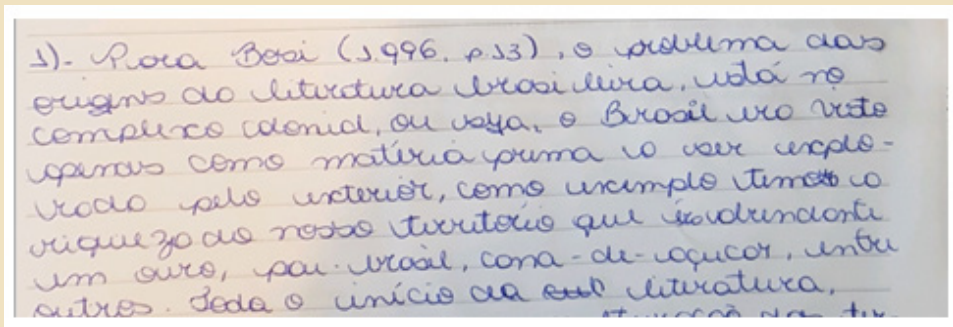 1). Para Bosi (1.996. p.13), o problema das
origens da literatura brasileira, está no
complexo colonial, ou seja, o Brasil era visto
apenas como matéria prima a ser explo-
rado pelo exterior, como exemplo temos a
riqueza do nosso território que é abundante
em ouro, pau-brasil, cana-de-açúcar, entre
outros. Toda o início da literatura,